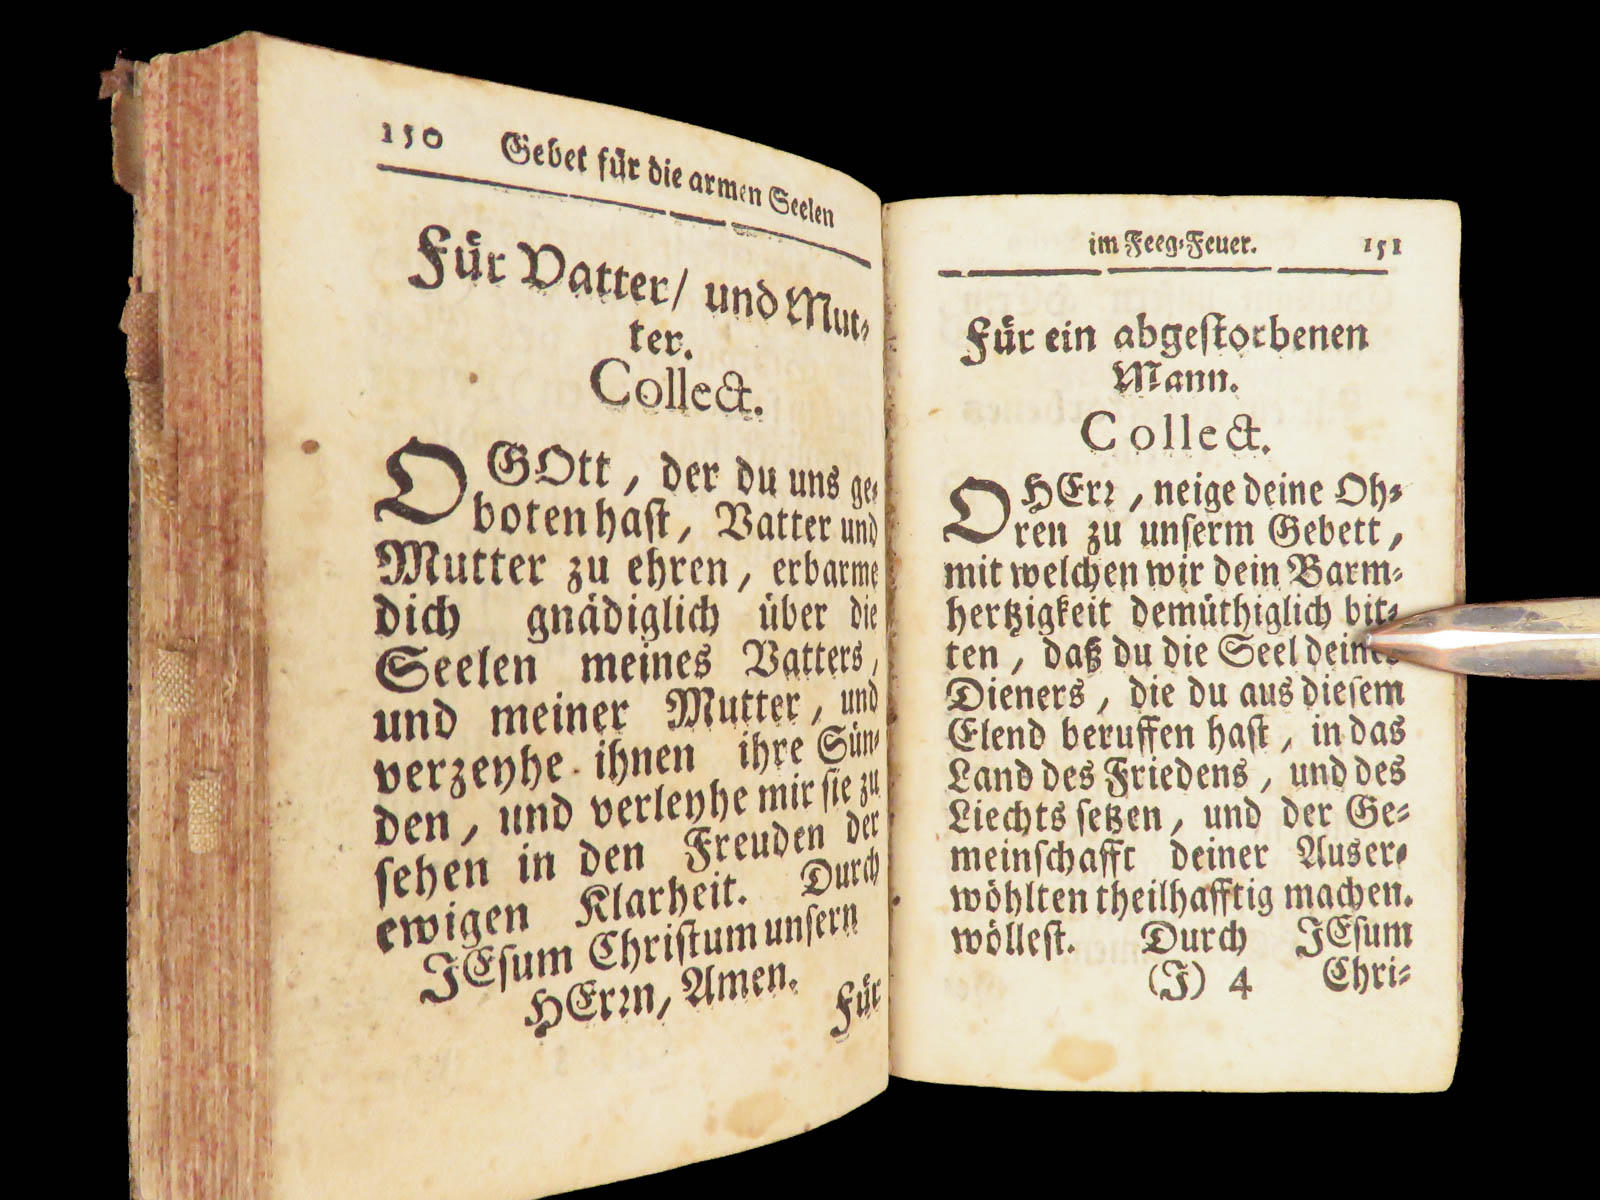 150 Gebet für die armen Seelen
Für Vatter/ und Mut⸗
ter.
Collect.
O GOtt, der du uns ge⸗
boten hast, Vatter und
Mutter zu ehren, erbarme
dich gnädiglich über die
Seelen meines Vatters,
und meiner Mutter, und
verzeyhe ihnen ihre Sün⸗
den, und verleyhe mir sie zu
sehen in den Freuden der
ewigen Klarheit. Durch
JEsum Christum unsern
HErꝛn, Amen.
Für
im Feeg⸗Feuer. 151
Für ein abgestorbenen
Mann.
Collect.
O HErꝛ, neige deine Oh⸗
ren zu unserm Gebett,
mit welchen wir dein Barm⸗
hertzigkeit demüthiglich bit⸗
ten, daß du die Seel deines
Dieners, die du aus diesem
Elend beruffen hast, in das
Land des Friedens, und des
Liechts setzen, und der Ge⸗
meinschafft deiner Auser⸗
wöhlten theilhafftig machen.
wöllest. Durch JEsum
(J) 4 Chri⸗